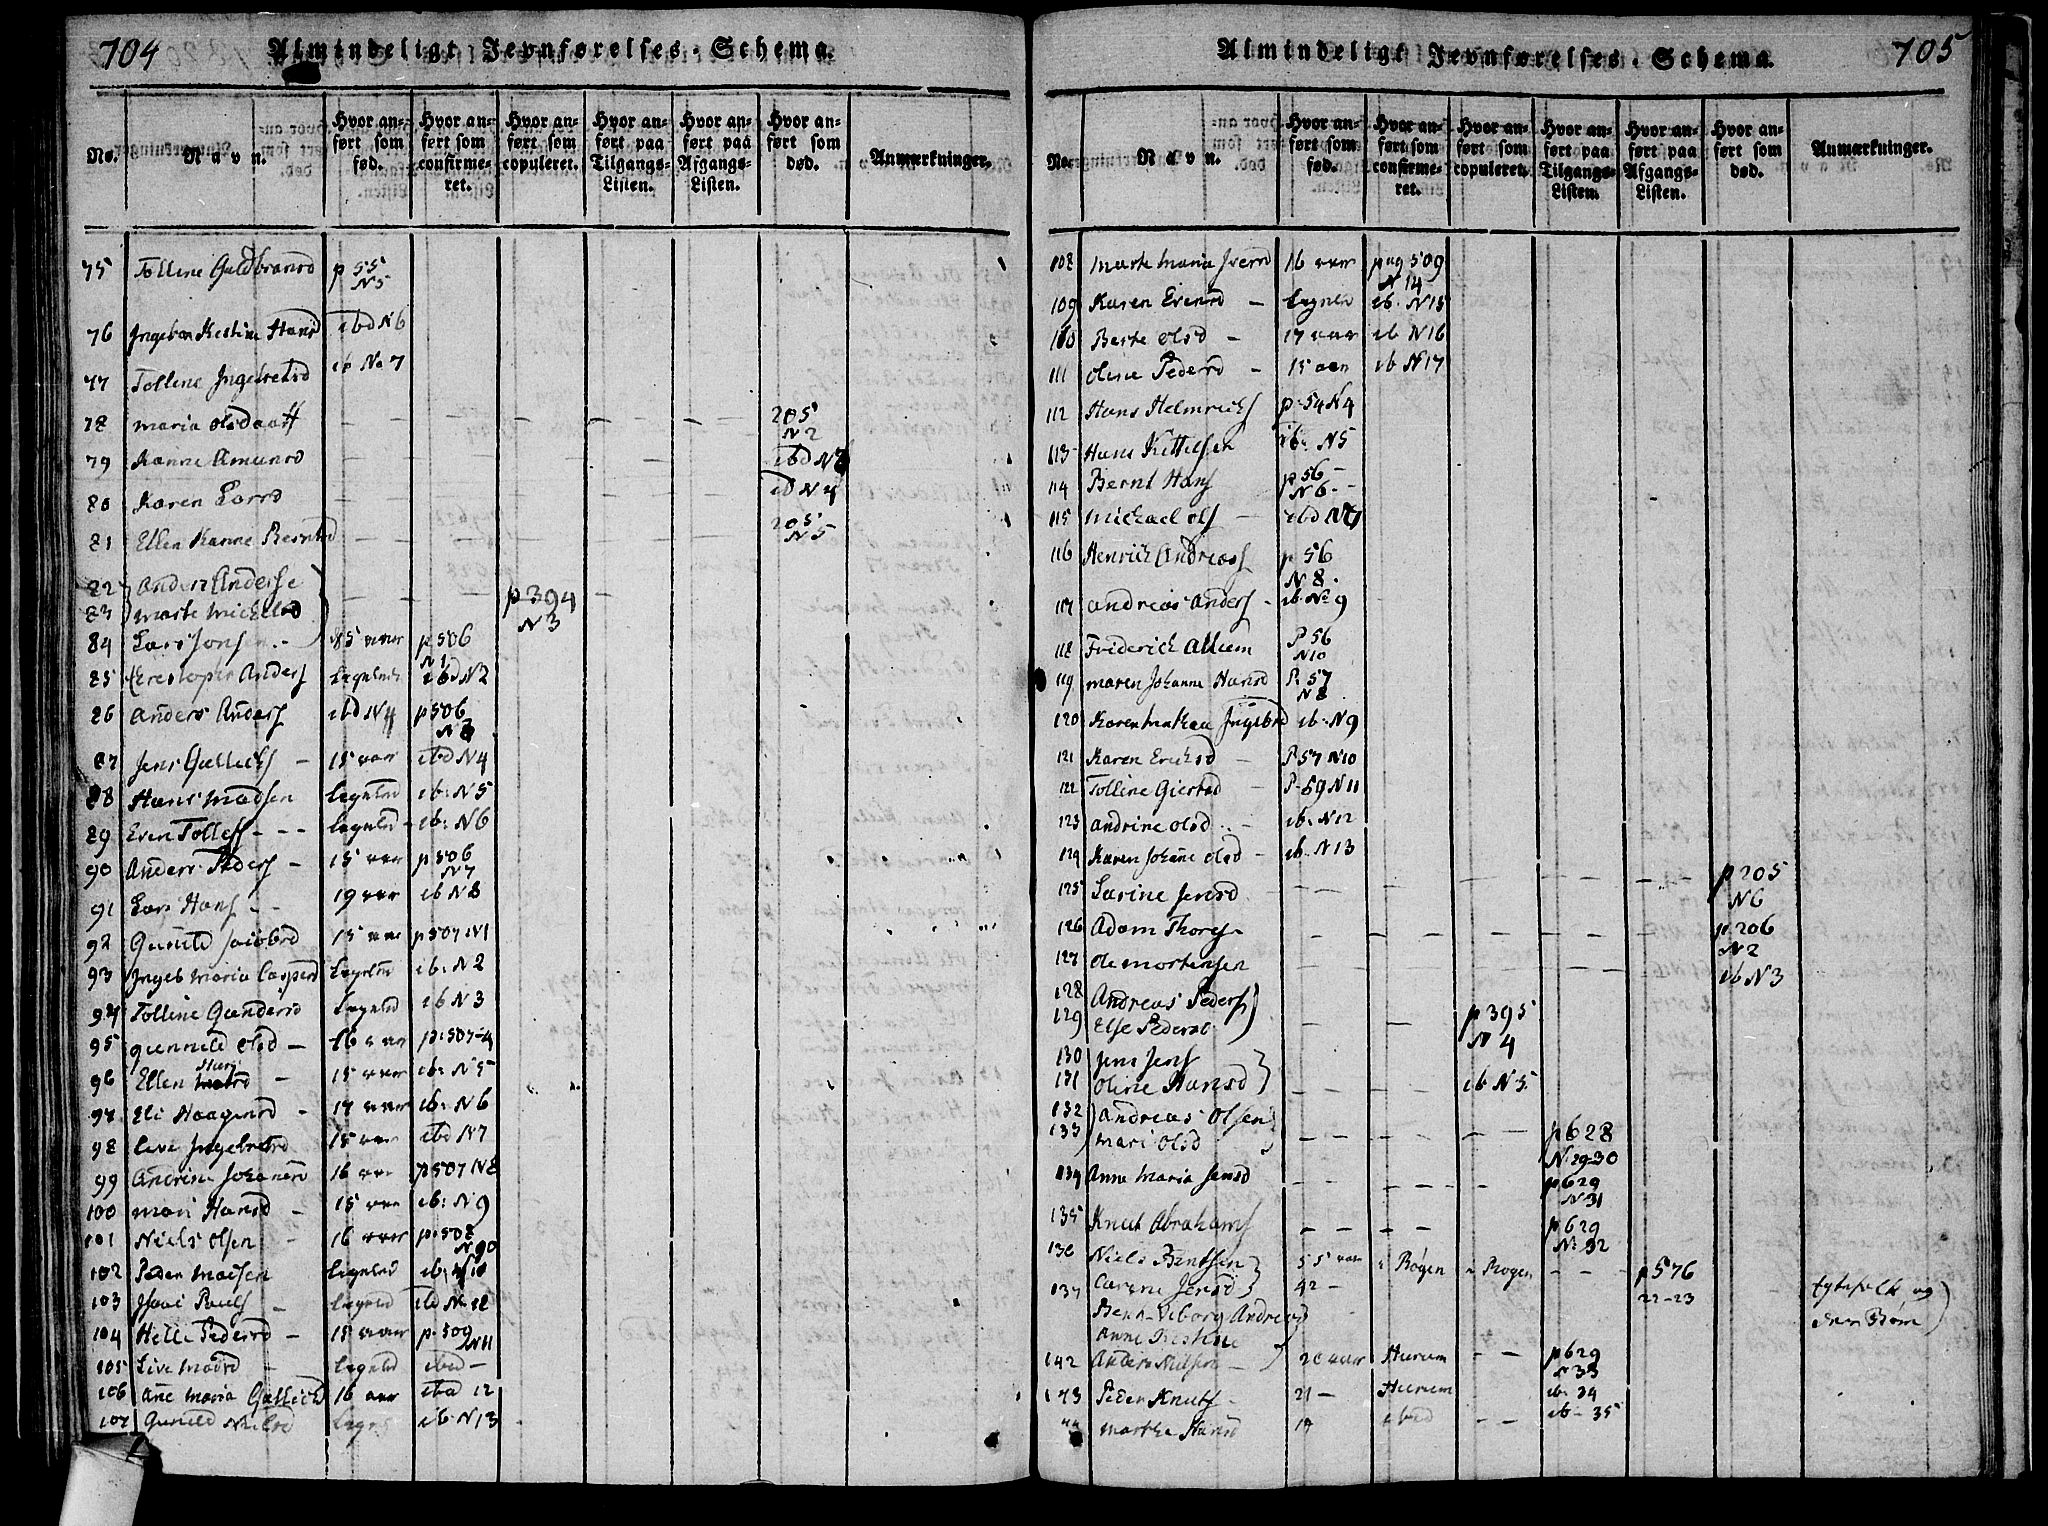 704 Almindeligt Jevnførelses-Schema.
No. Navn. Hvor anført som fød. Hvor anført som confirmeret. Hvor anført som copuleret. Hvor anført paa Tilgangs-Listen. Hvor anført paa Afgangs-Listen. Hvor anført som død. Anmærkninger.
75 Tolline Guldbransd p 55 N5
76 Ingebor Kestine Hansd ibd N6
77 Tolline Ingebretsd ib No 7
78 Maria Olsdaatt — — — — — 205 N2
79 Kanne Amunsd — — ibd N3
80 Karen Larsd — — — ib N4
81 Ellen Kanne Berntsd — — — — — 205 N5
82 Anders Anderse
83 Marte Mickelsd — — — p 394 N3 —
84 Lars Jons 85 aar p 506 N1
85 Christopher Anders Legeled ibd N2
86 Anders Anders ibd N4 p 506 N3
87 Jens Gulleichs — 15 aar ibd N4
88 Hans Madsen Legeled ib: N5
89 Even Tolless - - - Legeled - ib: N6
90 Anders Peders — 15 aar p 506 N7
91 Lars Hans - - 19 aar ib N8
92 Gunild Jacobsd 15 aar p 507 N1
93 Ingeb Maria Caspersd Legeled ib: N2
94 Tolline Gundersd Legeled ib N3
95 Gunnild Olsd — 16 aar p: 507-4
96 Ellen Hansd — 15 aar ib: N5
97 Eli Haagensd - 17 aar ib: N6
98 Live Ingebretsd 15 aar ibd N7
99 Andrine Johansd 16 aar p 507 N8
100 Mari Hansd - 15 aar ib: N9
101 Niels Olsen - 16 aar p: 508 N90
102 Peder Madsen Legeled ib: N10
103 Isaac Pauls — Legeled ibd N 12
104 Helle Pedersd — 15 aar p: 509 N11
105 Live Madsd — Legeled ibd —
106 Ane Maria Gullich 16 aar ibd 12
107 Gunild Nielsd Lege ib: N13
Almindeligt Jevnførelses-Schema. 705
No. Navn. Hvor anført som fød. Hvor anført som confirmeret. Hvor anført som copuleret. Hvor anført paa Tilgangs-Listen. Hvor anført paa Afgangs-Listen. Hvor anført som død. Anmærkninger.
108 Marte Maria Iversd 16 aar pag 509 N14
109 Karen Evensd — Legeled ib. N15
110 Berte Olsd — 17 aar ib N16
111 Oline Pedersd - 15 aar ib N17
112 Hans Helmrichs p. 54 N4
113 Hans Kittelsen ib. N5
114 Bernt Hans p 56 N6 - -
115 Michael Ols — ibd N7
116 Henrich Andreas p 56 N8.
117 Andreas Anders - ib. No 9
118 Friderich P 56 N10
119 Maren Johanne Hansd P. 57 N8
120 Karen Mathea Ingebrd ib. N9
121 Karen Ericksd — P 57 N10
122 Tolline Giertsd — P. 59 N11
123 Andrine Olsd — ib. N12
124 Karen Johane Olsd — ib. N13
125 Larine Jensd — — — — — p 205 N6
126 Adam Thors — — — — — p. 206 N2
127 Ole Mortensen — — — — ib N3
128 Andreas Peders
129 Else Pedersd — — p 395 N4
130 Jens Jens
131 Oline Hansd — — ib N5
132 Andreas Olsen
133 Mari Olsd — — — — p 628 N: 29-30
134 Anne Maria Jensd — — — — p 629 N31
135 Knut Abrahams — — — p 629 N: 32
136 Niels Bentsen 55 aar Røgen Røgen — — p 576
137 Jensd 42 — 22-23
Andreas
Anne Kestine
142 Anders Nielsen — 20 aar Hurum — — p 629 N33
143 Peder Knuts - 21 — Hurum ib: 34
Marthe Hansd 19 ibid — — ib - 35